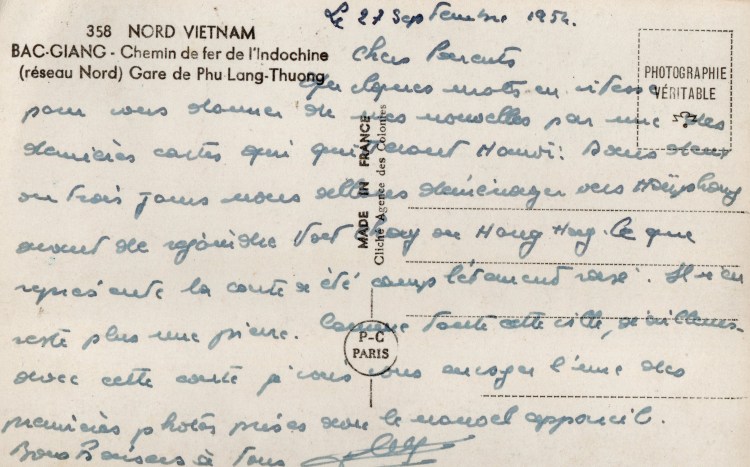 358 NORD VIETNAM
BAC-GIANG - Chemin de fer de l'Indochine
(réseau Nord) Gare de Phu Lang-Thuong
PHOTOGRAPHIE
VÉRITABLE
MADE IN FRANCE
Cliché Agence des Colonies
P-C
PARIS
Le 27 Septembre 1954.
Chers Parents
Quelques mots en vitesse
pour vous donner de mes nouvelles par une des
dernières cartes qui quitteront Hanoï. Dans deux
ou trois jours nous allons déménager vers Haïphong
avant de rejoindre Hong Hay. Ce que
représente la carte a été complètement rasé. Il n'en
reste plus une pierre. Comme toute cette ville, d'ailleurs.
avec cette carte je vous envoyer l'une des
premières photos prises avec le nouvel appareil.
Bons Baisers à Tous